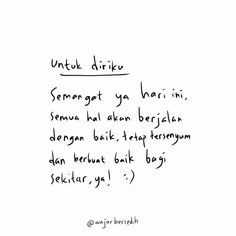 untuk diriku
Semangat ya hari ini,
semua hal akan berjalan
dengan baik, tetap tersenyum
dan berbuat baik bagi
sekitar, ya! :)
@wajarbersedih